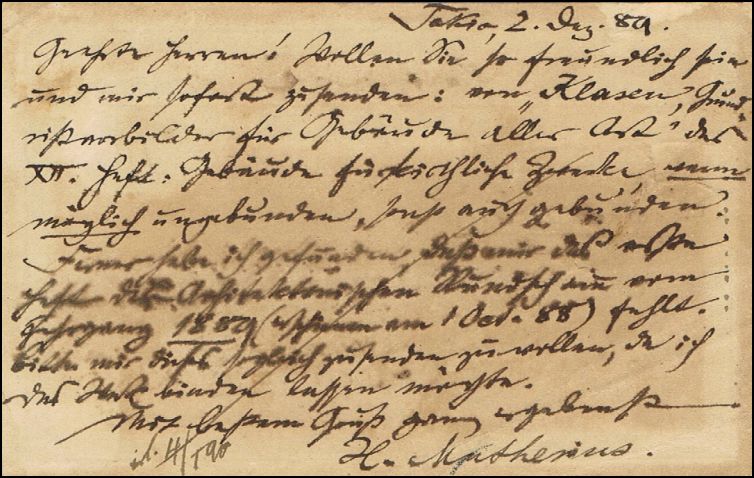 Tokio, 2. Dez. 89.
Geehrte Herren! Wollen Sie so freundlich sein
und mir sofort zusenden: von "Klasen, Grund-
rißvorbilder für Gebäude aller Art" das
XII. Heft: Gebäude für kirchliche Zwecke, wenn
möglich ungebunden, sonst auch gebunden.
Ferner habe ich gefunden, daß mir das erste
Heft der Architektonischen Rundschau vom
Jahrgang 1889 (erschienen am 1 Oct. 88) fehlt.
bitte mir dieses sogleich zusenden zu wollen, da ich
das Werk binden lassen möchte.
Mit bestem Gruß ganz ergebenst
H. Muthesius.
4/1 90